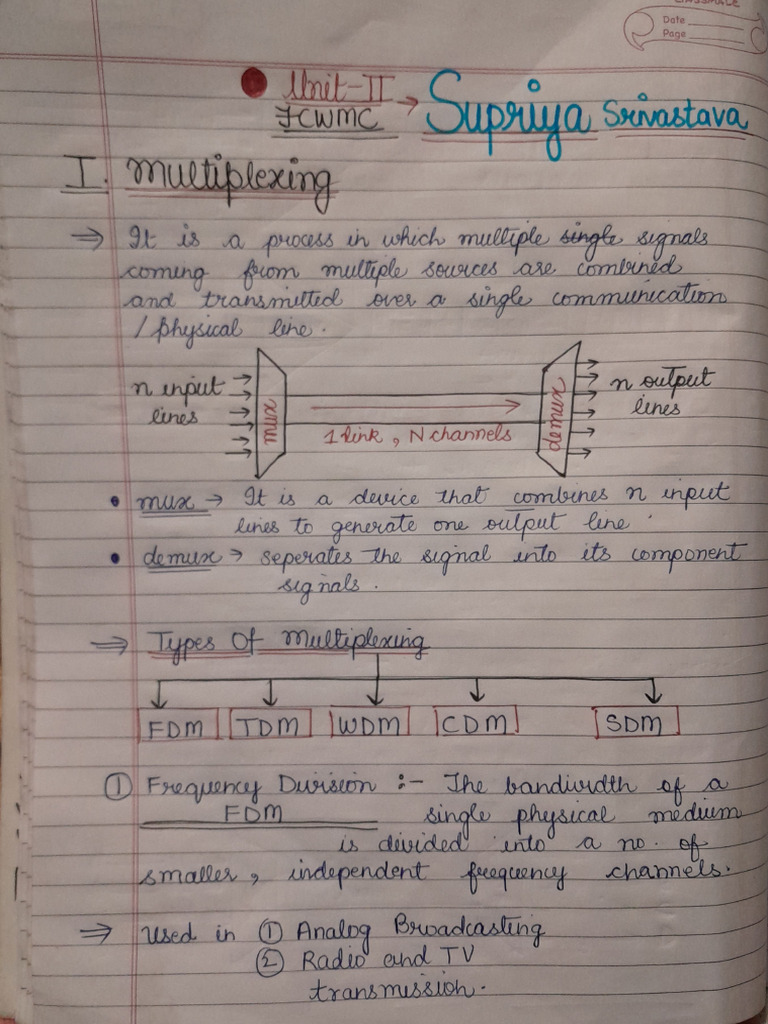 CLASSMATE
Date
Page
Unit-II
FCWMC → Supriya Srivastava
I. Multiplexing
⇒ It is a process in which multiple single signals
coming from multiple sources are combined
and transmitted over a single communication
/ physical line.
n input
lines
mux
1 link, N channels
demux
n output
lines
• mux → It is a device that combines n input
lines to generate one output line.
• demux → seperates the signal into its component
signals.
⇒ Types Of Multiplexing
FDM TDM WDM CDM SDM
① Frequency Division :- The bandwidth of a
FDM single physical medium
is divided into a no. of
smaller, independent frequency channels.
⇒ Used in ① Analog Broadcasting
② Radio and TV
transmission.